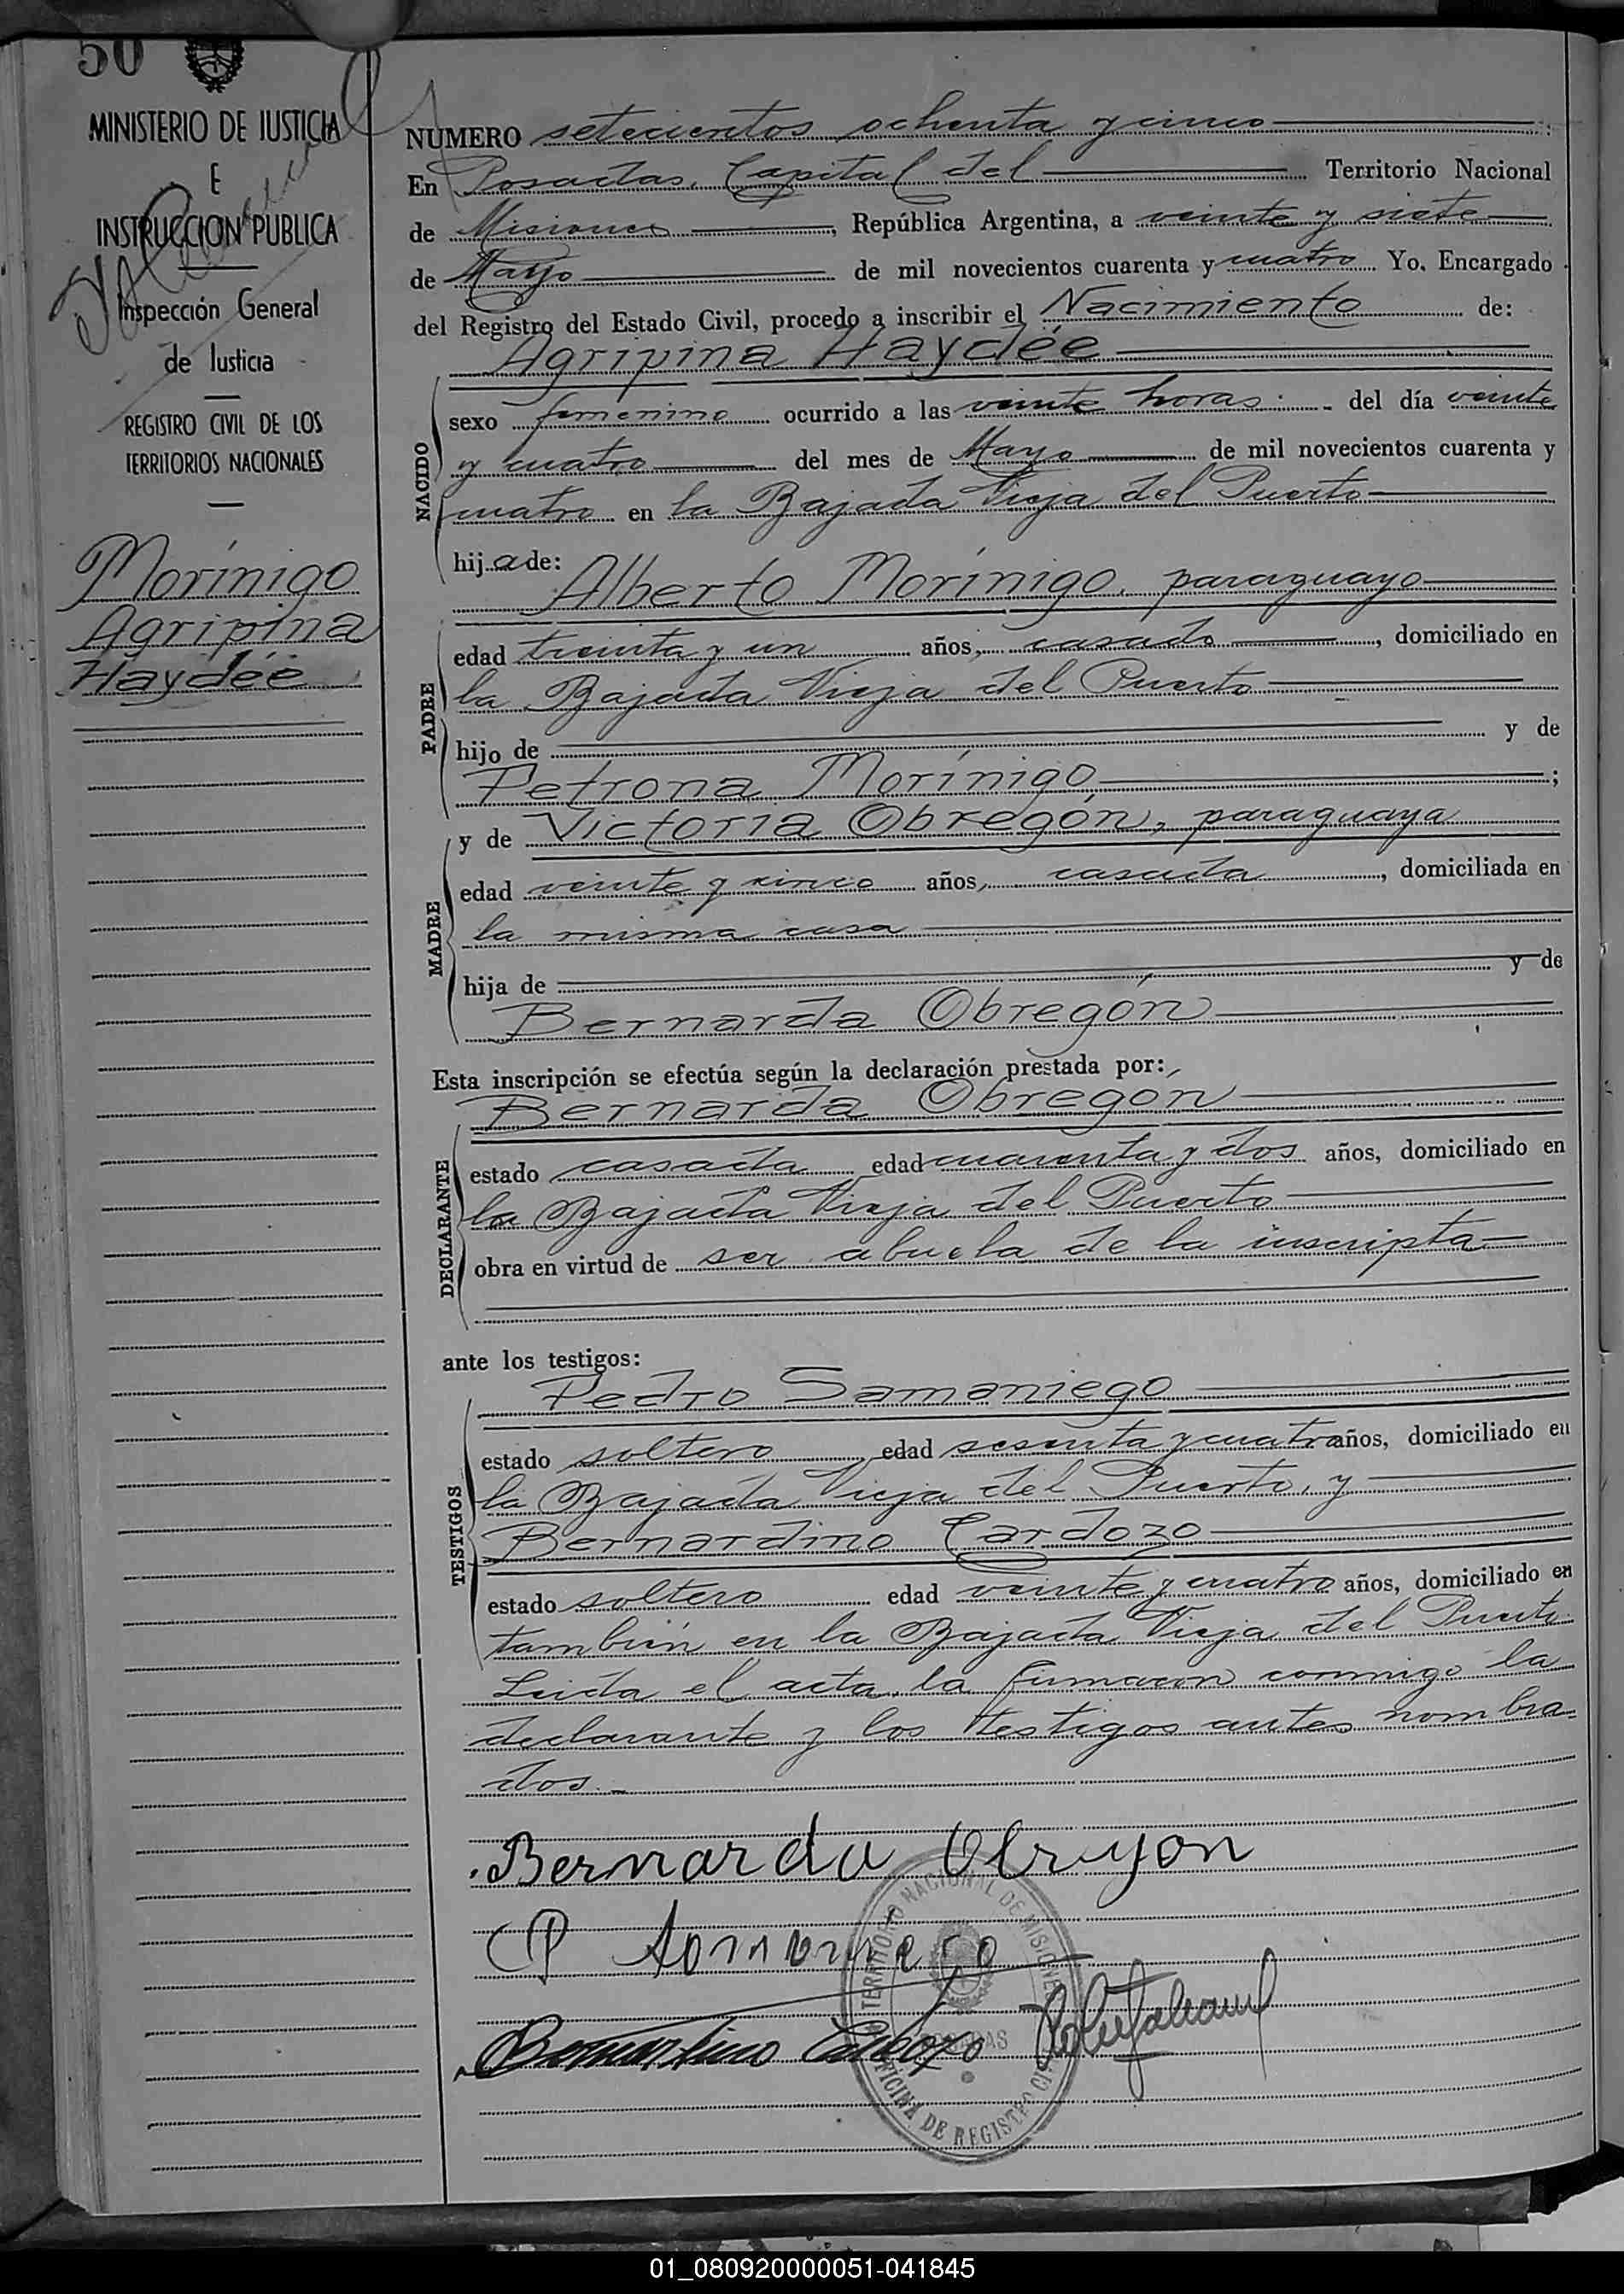 50
MINISTERIO DE JUSTICIA
E
INSTRUCCION PUBLICA
Inspección General
de Justicia
REGISTRO CIVIL DE LOS
TERRITORIOS NACIONALES
Morínigo
Agripina
Haydée
NUMERO setecientos ochenta y cinco
En Posadas, Capital del Territorio Nacional
de Misiones, República Argentina, a veinte y siete
de Mayo de mil novecientos cuarenta y cuatro Yo, Encargado
del Registro del Estado Civil, procedo a inscribir el Nacimiento de:
Agripina Haydée
NACIDO
sexo femenino ocurrido a las veinte horas. del día veinte
y cuatro del mes de Mayo de mil novecientos cuarenta y
cuatro en la Bajada Vieja del Puerto
hija de:
Alberto Morínigo, paraguayo
PADRE
edad treinta y un años, casado, domiciliado en
la Bajada Vieja del Puerto
hijo de y de
Petrona Morínigo;
y de Victoria Obregón, paraguaya
MADRE
edad veinte y cinco años, casada, domiciliada en
la misma casa
hija de y de
Bernarda Obregón
Esta inscripción se efectúa según la declaración prestada por:
Bernarda Obregón
DECLARANTE
estado casada edad cuarenta y dos años, domiciliado en
la Bajada Vieja del Puerto
obra en virtud de ser abuela de la inscripta
ante los testigos:
Pedro Samaniego
TESTIGOS
estado soltero edad sesenta y cuatro años, domiciliado en
la Bajada Vieja del Puerto, y
Bernardino Cardozo
estado soltero edad veinte y cuatro años, domiciliado en
también en la Bajada Vieja del Puerto.
Leida el acta, la firmaron conmigo la
declarante y los testigos antes nombra-
dos.
Bernarda Obregon
TERRITORIO NACIONAL DE MISIONES
OFICINA DE REGISTRO CIVIL
01_080920000051-041845